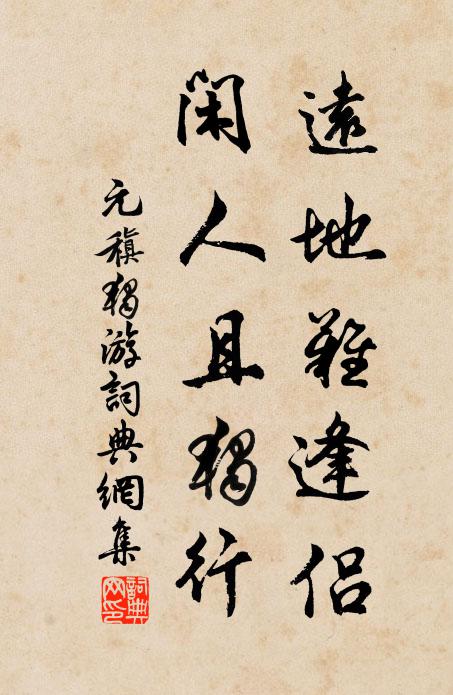 遠地難逢侶
閑人且獨行
元稹獨游詞典網集
詞典
网印